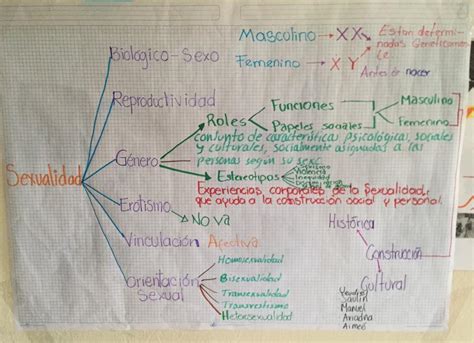 Masculino → XX
Están determi-
nadas Geneticamen-
te.
Femenino → XY
Antes de nacer
Biologico-Sexo
Reproductividad
Sexualidad
Género
Roles
Funciones
Papeles sociales
Masculino
Femenino
conjunto de características psicológicas, sociales
y culturales, socialmente asignadas a las
personas según su sexo
Estereotipos
Violencia
Inequidad
Experiencias corporales de la sexualidad,
que ayuda a la construcción social y personal.
Erotismo
No va
Vinculación Afectiva
Histórica
Construcción
Cultural
Orientación
Sexual
Homosexualidad
Bisexualidad
Transexualidad
Transvestismo
Heterosexualidad
Saulin
Manuel
Ariadna
Aimeé